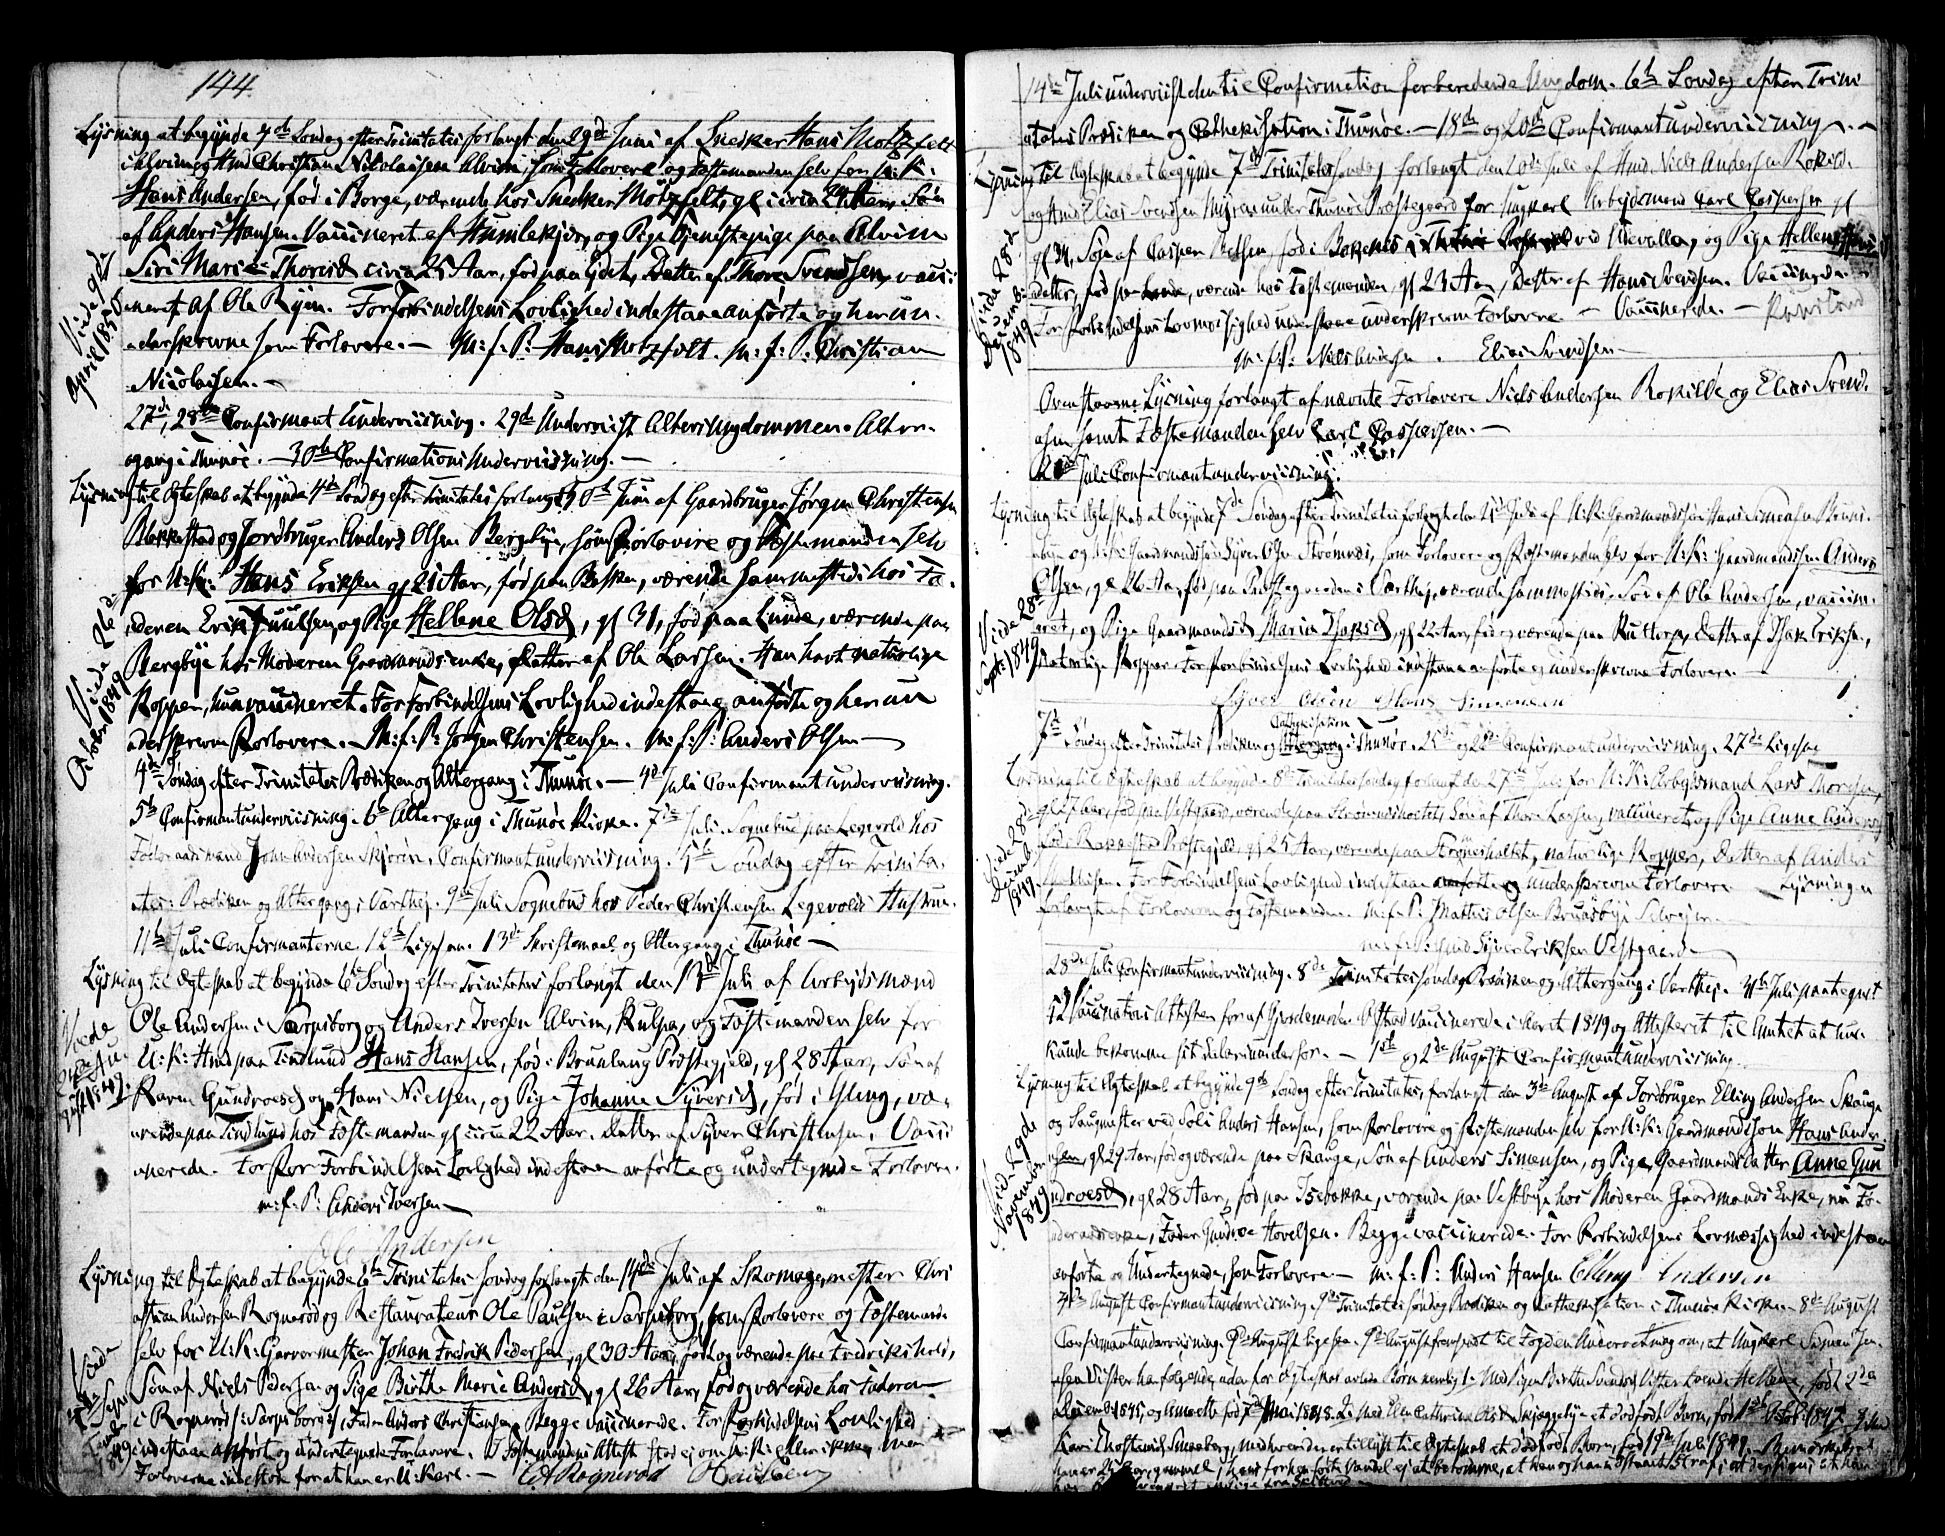 144.
Lysning at begynde 4de Søndag efter Trinitatis forlangt den 29de Juni af Snedker Hans Motzfelt
i Alvim og Hmd Christian Nikolaisen Alvim, som Forlovere og Fæstemanden selv for U: K:
Hans Andersen, fød i Borge, værende hos Snedker Motzfelt, gl circa 24 Aar, Søn
af Anders Hansen. Vaccineret af Humlekjær, og Pige Tjenestepige paa Alvim
Siri Marie Thoresd circa 25 Aar, fød paa Gjeet, Datter af Thore Svendsen, vacci
neret af Ole Ryen. For Forbindelsens Lovlighed indestaae anførte og herun-
derskrevne som Forlovere. - M: f: P: Hans Motzfelt. M: f: P: Christian
Nicolaisen. -
Viede 9de
April 1850
27de, 28de Confirmant Underviisning. 29de Underviist Alters Ungdommen. Alter-
gang i Thunøe. - 30te Confirmations Underviisning. -
Lysning til Ægteskab at begynde 4de Søndag efter Trinitatis forlangt 30te Juni af Gaardbruger Jørgen Christensen
Rakkestad og Jordbruger Anders Olsen Bergbye, som Forlovere og Fæstemanden selv
for U: K: Hans Eriksen gl 21 Aar, fød paa Bakken, værende sammesteds hos Fa-
deren Erik Juulsen, og Pige Hellene Olsd, gl 31, fød paa Lunde, værende paa
Bergbye hos Moderen Gaardmandsenke, Datter af Ole Larsen. Han havt naturlige
Kopper, hun vaccineret. For Forbindelsens Lovlighed indestaae anførte og herun
derskrevne Forlovere. M: f: P: Jørgen Christensen. M: f: P: Anders Olsen -
Viede
1849
4de Søndag efter Trinitatis Prædiken og Altergang i Thunøe. - 4de Juli Confirmant underviisning.
5te Confirmantunderviisning. 6te Altergang i Thunøe Kirke. 7de Juli Sognebud paa Legevold hos
Føderaadsmand John Andersen Skjøren, Confirmantunderviisning. 5te Søndag efter Trinita-
tis: Prædiken og Altergang i Varthej. 9de Juli Sognebud hos Peder Christensen Legevolds Hustrue.
11te Juli Confirmanterne. 12te Ligesaa. 13de Skriftemaal og Altergang i Thunøe -
Lysning til Ægteskab at begynde 6te Søndag efter Trinitatis forlangt den 13de Juli af Arbeidsmand
Ole Andersen i Sarpsborg og Anders Iversen Alvim, Kulpa, og Fæstemanden selv for
U: K: Hmd paa Tindlund Hans Hansen, fød i Brunlaug Præstegjeld, gl 28 Aar, Søn af
Karen Gundroesd og Hans Nielsen, og Pige Johanne Syversd, fød i Yling, væ-
rende paa Tindlund hos Fæstemanden gl circa 22 Aar. Datter af Syver Christensen. Vacci
nerede. For For Forbindelsens Lovlighed indestaae anførte og undertegnede Forlovere.
m: f: P: Anders Iversen -
Ole Andersen
Viede
1849.
Lysning til Ægteskab at begynde 6te Trinitatis Søndag forlangt den 14de Juli af Skomagermester Chri
stian Andersen Rognerød og Restaurateur Ole Paulsen i Sarpsborg, som Forlovere og Fæstemand
selv for U: K: Garvermester Johan Fredrik Pedersen, gl 30 Aar, fød og værende paa Fredrikshald,
Søn af Niels Pedersen og Pige Birthe Marie Andersd, gl 26 Aar, fød og værende hos Faderen
i Rognerød i Sarpsborg, Fader Anders Christensen. Begge vaccinerede. For Forbindelsens Lovlighed
indestaae anført og undertegnede Forlovere. I Fæstemandens Attest stod ej om Frist eller ikke, men
Forloverne indestod for at han er U: Karl. - CA Rognerød O Paulsen
Viede
1849
14de Juli underviist den til Confirmation forberedende Ungdom. 6te Søndag efter Trini
tatis Prædiken og Cathekisation i Thunøe. - 18de og 20de Confirmantunderviisning. -
Lysning til Ægteskab at begynde 7de Trinitatis Søndag forlangt den 20de Juli af Hmd Niels Andersen Rokild
og Hmd Elias Svendsen Myren under Thunøe Præstegaard for Ungkarl Arbejdsmand Carl Caspersen gl
gl 34, Søn af Casper Nelsen fød i Bokenes ved Udevalla, og Pige Hellene Hans
datter, fød paa Lande, værende hos Fæstemanden gl 23 Aar, Datter af Hans Svendsen. Vaccinerede.
For Forbindelsens Lovmæssighed indestaae underskrevne Forlovere. - Vaccinerede. -
m: f: P: Niels Andersen. Elias Svendsen -
Viede 28de
Decemb:
1849
Ovenstaaende Lysning forlangt af nævnte Forlovere Niels Andersen Rokilde og Elias Svend-
sen samt Fæstemanden selv Carl Caspersen. -
20de Juli Confirmantunderviisning.
Lysning til Ægteskab at begynde 7de Søndag efter Trinitatis forlangt den 21de Juli af U: K: Gaardmandssøn Hans Simensen
og Gaardmandssøn Syver Olsen Strømnæs, som Forlovere og Fæstemanden selv for U: K: Gaardmandssøn Anders
Olsen, gl 26 Aar, fød paa Præstegaarden i Varthej, værende sammesteds, Søn af Ole Andersen, vaccin-
eret, og Pige Gaardmandsd Maria Isaksd, gl 22 Aar, fød og værende paa Kuttorp, Datter af Isak Eriksen,
Naturlige Kopper. For Forbindelsens Lovlighed indestaae anførte og underskrevne Forlovere. -
Syver Olsen Hans Simensen
Viede 28de
Septr 1849
7de Søndag efter Trinitatis Prædiken og Cathekisation i Thunøe. 25de og 26de Confirmantunderviisning. 27de Ligesaa
Lysning til Ægteskab at begynde 8de Trinitatis Søndag forlangt den 27de Juli for U: K: Arbejdsmand Lars Thoresen,
fød paa Vestgaard, værende paa Strømnæsholtet, Søn af Thore Larsen, vaccineret, og Pige Anne Andersd,
fød i Rakkestad Præstegjeld, gl 25 Aar, værende paa Strømsholtet, naturlige Kopper, Datter af Anders
Mathisen. For Forbindelsens Lovlighed indestaae anførte og underskrevne Forlovere. Lysningen
forlangt af Forloverne og Fæstemanden. m: f: P: Mathis Olsen Brunsbye Selvejer -
m: f: P: Syver Eriksen Vestgaard -
Viede 28de
Decemb
1849.
28de Juli Confirmantunderviisning. 8de Trinitatis Søndag Prædiken og Altergang i Varthej. 31te Juli paategnet
52 Vaccinations Attester for af Gjordemoder Ofstad vaccinerede i Aaret 1849 og Attesteret til Amtet at hun
kunde bekomme sit Salair derfor. - 1ste og 2de August Confirmantunderviisning.
Lysning til Ægteskab at begynde 9de Søndag efter Trinitatis, forlangt den 3de August af Jordbruger Elling Andersen Skauge
og Saugmester ved Soli Anders Hansen, som Forlovere og Fæstemanden selv for U: K: Gaardmandssøn Hans Ander-
sen, gl 29 Aar, fød og værende paa Skauge, Søn af Anders Simensen, og Pige Gaardmandsdatter Anne Gun
droesd, gl 28 Aar, fød paa Isebakke, værende paa Vestbye hos Moderen Gaardmands Enke, nu Fø-
deraadsenke, Fader Gundroe Hovelsen. Begge vaccinerede. For Forbindelsens Lovmæssighed indestaae
anførte og Undertegnede, som Forlovere - m: f: P: Anders Hansen Elling Andersen
Viede 29de
November
1849
4de August Confirmantunderviisning. 9de Trinitatis Søndag Prædiken og Cathekisation i Thunøe Kirke. 8de August
Confirmantunderviisning. 9de August ligesaa. 9de August fremsendt til Fogden Underretning om, at Ungkarl Simen Jen-
sen Vister har følgende uden for Ægteskab avlede Børn nemlig 1. Med Pigen Birthe Svendsd Vister tvende Hellene, fød 2de
Decemb: 1845, og Annette fød 7de Mai 1848. 2. Med Elen Cathrine Olsd Skjeggebye et dødfødt Barn, fød 1ste Octob: 1847. 3. Med
Kari Thostensd Smaaberg, med hvem der er tillyst til Ægteskab et dødfødt Barn, fød 19de Juli 1849.